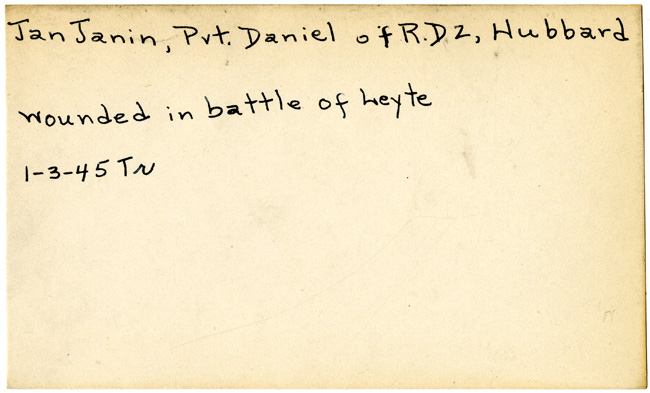 Jan Janin, Pvt. Daniel of R.D2, Hubbard
wounded in battle of Leyte
1-3-45 Tr